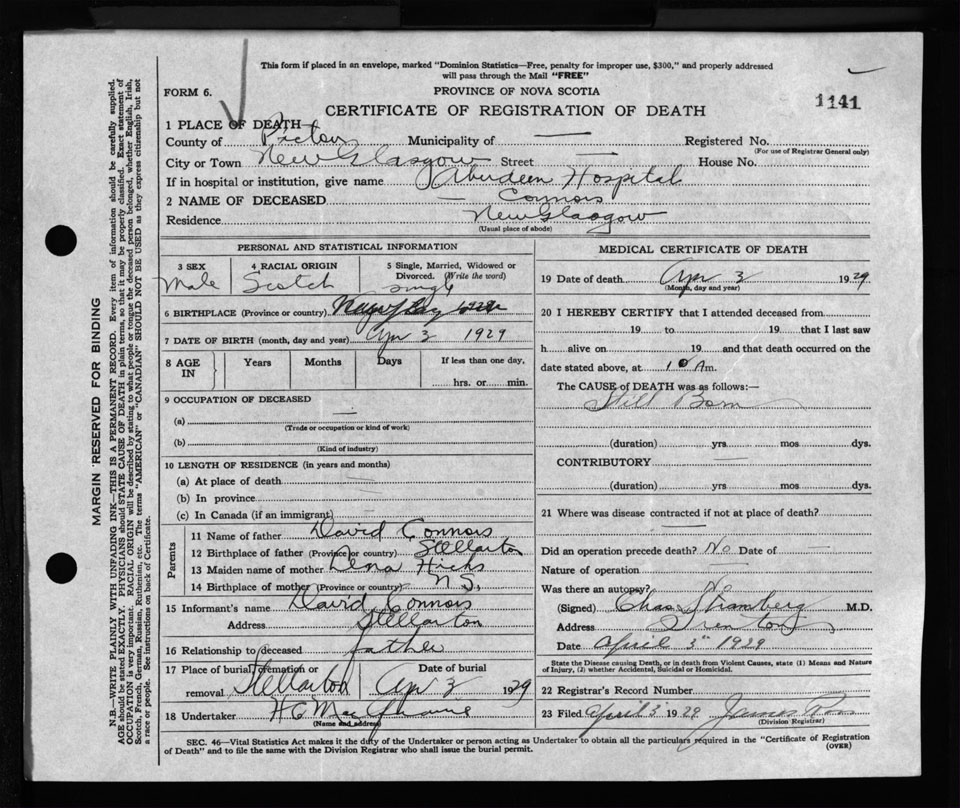 This form if placed in an envelope, marked "Dominion Statistics—Free, penalty for improper use, $300," and properly addressed
will pass through the Mail "FREE"
FORM 6.
PROVINCE OF NOVA SCOTIA
1141
CERTIFICATE OF REGISTRATION OF DEATH
1 PLACE OF DEATH—
County of Pictou Municipality of — Registered No.
(For use of Registrar General only)
City or Town New Glasgow Street — House No.
If in hospital or institution, give name Aberdeen Hospital
2 NAME OF DECEASED — Connors
Residence New Glasgow
(Usual place of abode)
PERSONAL AND STATISTICAL INFORMATION
3 SEX 4 RACIAL ORIGIN 5 Single, Married, Widowed or
Divorced. (Write the word)
Male Scotch single
6 BIRTHPLACE (Province or country)
7 DATE OF BIRTH (month, day and year) Apr 3 1929
8 AGE IN Years Months Days If less than one day,
hrs. or min.
9 OCCUPATION OF DECEASED
(a) —
(Trade or occupation or kind of work)
(b)
(Kind of industry)
10 LENGTH OF RESIDENCE (in years and months)
(a) At place of death —
(b) In province
(c) In Canada (if an immigrant) —
Parents
11 Name of father David Connors
12 Birthplace of father (Province or country) Stellarton
13 Maiden name of mother Lena Hicks
14 Birthplace of mother (Province or country) N S.
15 Informant's name David Connors
Address Stellarton
16 Relationship to deceased father
17 Place of burial, cremation or removal Stellarton
Date of burial Apr 3 1929
18 Undertaker H G Mac
(Name and address)
MEDICAL CERTIFICATE OF DEATH
19 Date of death Apr 3 1929
(Month, day and year)
20 I HEREBY CERTIFY that I attended deceased from
19 to 19 that I last saw
h alive on 19 and that death occurred on the
date stated above, at 10 A m.
The CAUSE OF DEATH was as follows:—
Still Born
(duration) yrs mos dys.
CONTRIBUTORY —
(duration) yrs mos dys.
21 Where was disease contracted if not at place of death?
—
Did an operation precede death? No Date of —
Nature of operation —
Was there an autopsy? No
(Signed) Chas Stramberg M.D.
Address Trenton
Date April 3rd 1929
State the Disease causing Death, or in death from Violent Causes, state (1) Means and Nature
of Injury, (2) whether Accidental, Suicidal or Homicidal.
22 Registrar's Record Number
23 Filed April 3 1929 James
(Division Registrar)
SEC. 46—Vital Statistics Act makes it the duty of the Undertaker or person acting as Undertaker to obtain all the particulars required in the "Certificate of Registration
of Death" and to file the same with the Division Registrar who shall issue the burial permit.
(OVER)
MARGIN RESERVED FOR BINDING
N.B.—WRITE PLAINLY WITH UNFADING INK—THIS IS A PERMANENT RECORD. Every item of information should be carefully supplied.
AGE should be stated EXACTLY. PHYSICIANS should STATE CAUSE OF DEATH in plain terms, so that it may be properly classified. Exact statement of
OCCUPATION is very important. RACIAL ORIGIN will be described by stating to what people or tongue the deceased person belonged, whether English, Irish,
Scotch, French, German, Russian, Ruthenian, etc. The terms "AMERICAN" or "CANADIAN" SHOULD NOT BE USED as they express citizenship but not
a race or people. See instructions on back of Certificate.